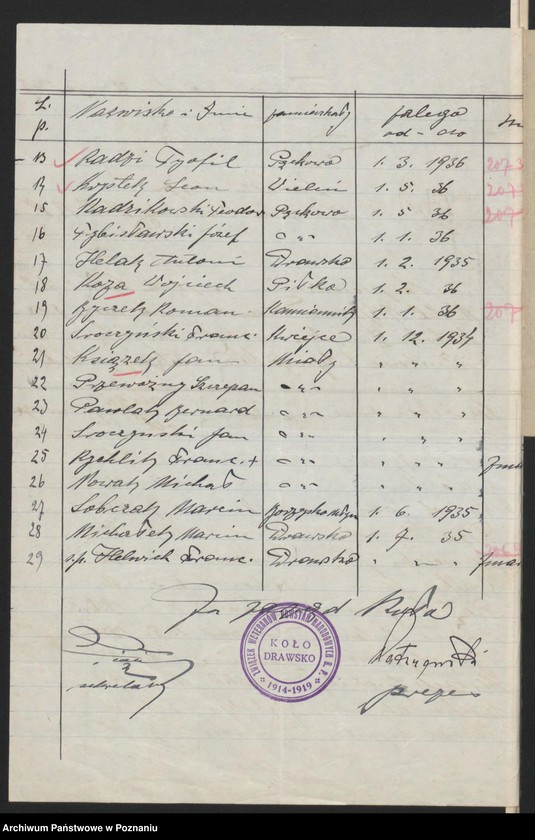 L. p. Nazwisko i Imię zamieszkały zalega od - do
13 Radzi Tyofil Pęckowo 1. 3. 1936 207
14 Wojtek Leon Wieleń 1. 5. 36 207
15 Kadzikowski Teodor Pęckowo 1. 5 36 207
16 józef " " 1. 1. 36
17 Antoni Drawsko 1. 2. 1935
18 Koza Wojciech Piłka 1. 2. 36
19 Roman Kamiennik 1. 1. 36 207
20 Sroczyński Franc. Kwiejce 1. 12. 1934
21 Książek jan Miały " " "
22 Przewoźny Szczepan " " " " "
23 Pawlak Bernard " " " " "
24 Sroczyński jan " " " " "
25 Rychlik Franc. + " " " " "
26 Nowak Michał " " " " "
27 Sobczak Marcin 1. 6. 1935
28 Michałek Marcin Drawsko 1. 7. 35
29 ś.p. Helwich Franc. Drawsko " " "
Za zarząd Koła
ZWIĄZEK WETERANÓW POWSTAŃ NARODOWYCH R.P.
KOŁO
DRAWSKO
1914-1919
sekretarz
prezes
Archiwum Państwowe w Poznaniu